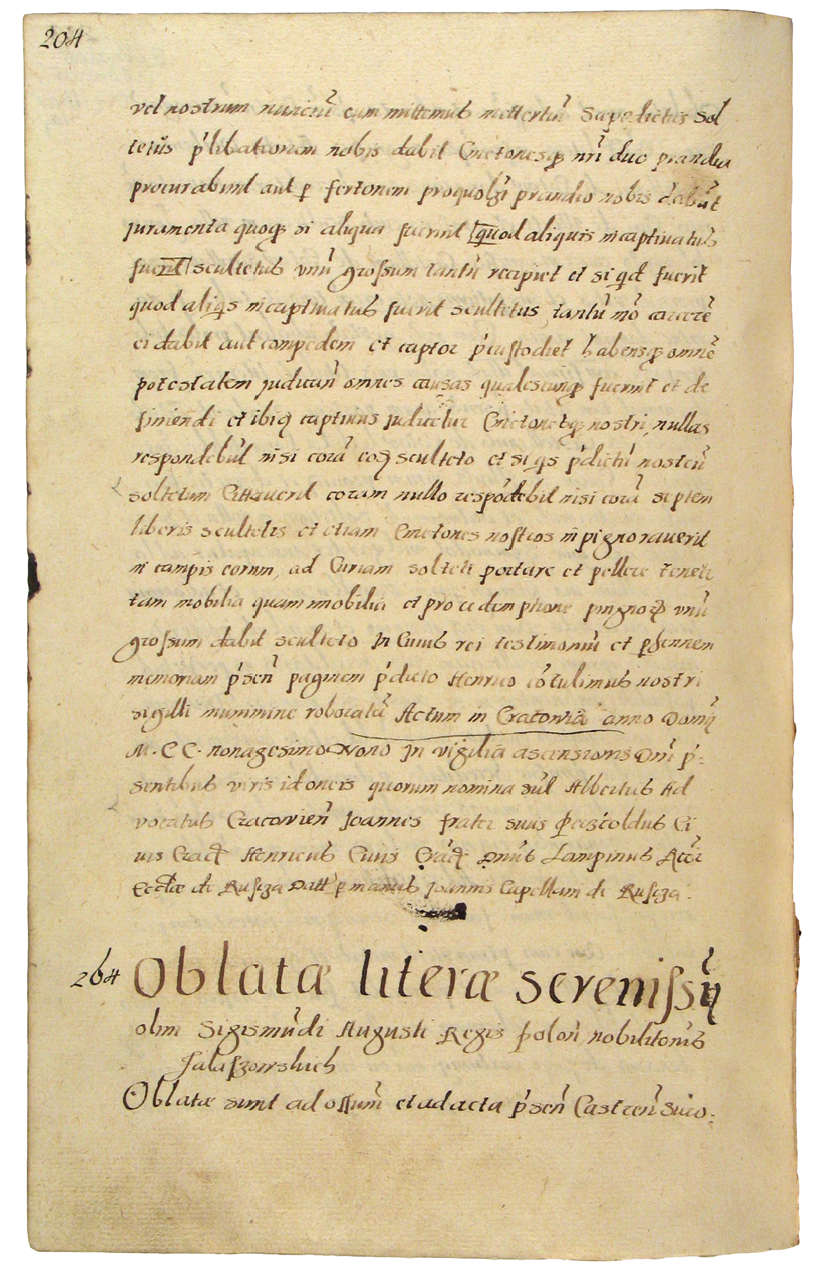 204
vel nostrum nunciū cum mittemus mettertiū Sapedictus Sol
tetūs p'libationem nobis dabit Cmetonesq3 nr̄i duo prandia
procurabunt aut p fertonem proquol3t prandio nobis dabūt
juramenta quoq3 si aliqua fuerint quod aliquis incaptivatus
fuerit scultetus unū grossum tantū recipiet et si qd fuerit
quod aliqs incaptivatus fuerit scultetus tantū mō carcerē
ei dabit aut compedem et captor p'custodiet habensq3 omnē
potestatem judican̄ omnes causas qualescunq3 fuerint et de
finiendi et ibiq captivus judicetur Cmetonesq3 nostri nullas
respondebūt nisi corā eoꝗ sculteto et si qs p'dictū nostrū
soltetum Citaverit coram nullo respōdebit nisi corā septem
liberis scultetis et etiam Cmetones nostros in pignoraverit
in campis eorum, ad Curiam solteti portare et pellere tenetr
tam mobilia quam imobilia et pro redemptione pingnoꝝ unū
grossum dabit sculteto In Cuius rei testimoniū et p'hennem
memoriam p'sen̄ paginem p'dicto Henrico cōtulimus nostri
sigilli munimine roboratā Actum in Cracoviā anno Domī
M. CC. nonagesimo Nono In vigilia ascensionis Dnī p'-
sentibus viris idoneis quorum nomina sūt Albertus Ad
vocatus Cracovien̄ Joannes frater suus Pescoldus Ci
vis Crac Henricus Civis Crac Dnūs Lampinus Rcōr
Ecclæ de Rusçza Datt p manus Joannis Capellani de Rusçza.
264 Oblatæ literæ serenissī
olim Sigismūdi Augusti Regis Polon̄ nobilitonis
Salaszowskich
Oblatæ sunt ad officiū et ad acta p'sen̄ Castren̄ Suco-